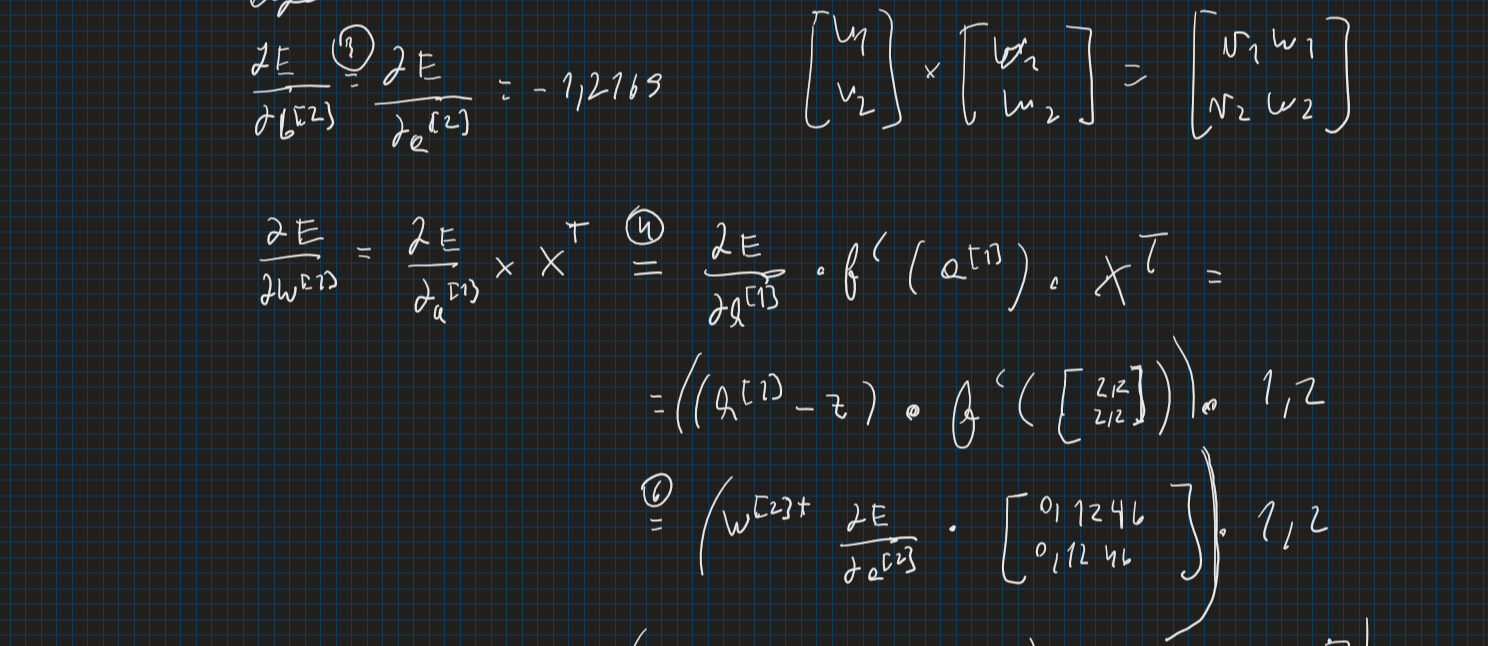 ∂E/∂b^[2] =③ ∂E/∂a^[2] = -1,2169
[v1 v2] × [w1 w2] = [v1 w1 v2 w2]
∂E/∂W^[1] = ∂E/∂a^[1] × X^T =④ ∂E/∂h^[1] · f'(a^[1]) · X^T =
= ((h^[1] - z) · f'([2,2 2,2])) · 1,2
=⑥ (W^[2]T ∂E/∂a^[2] · [0,1246 0,1246]) · 1,2